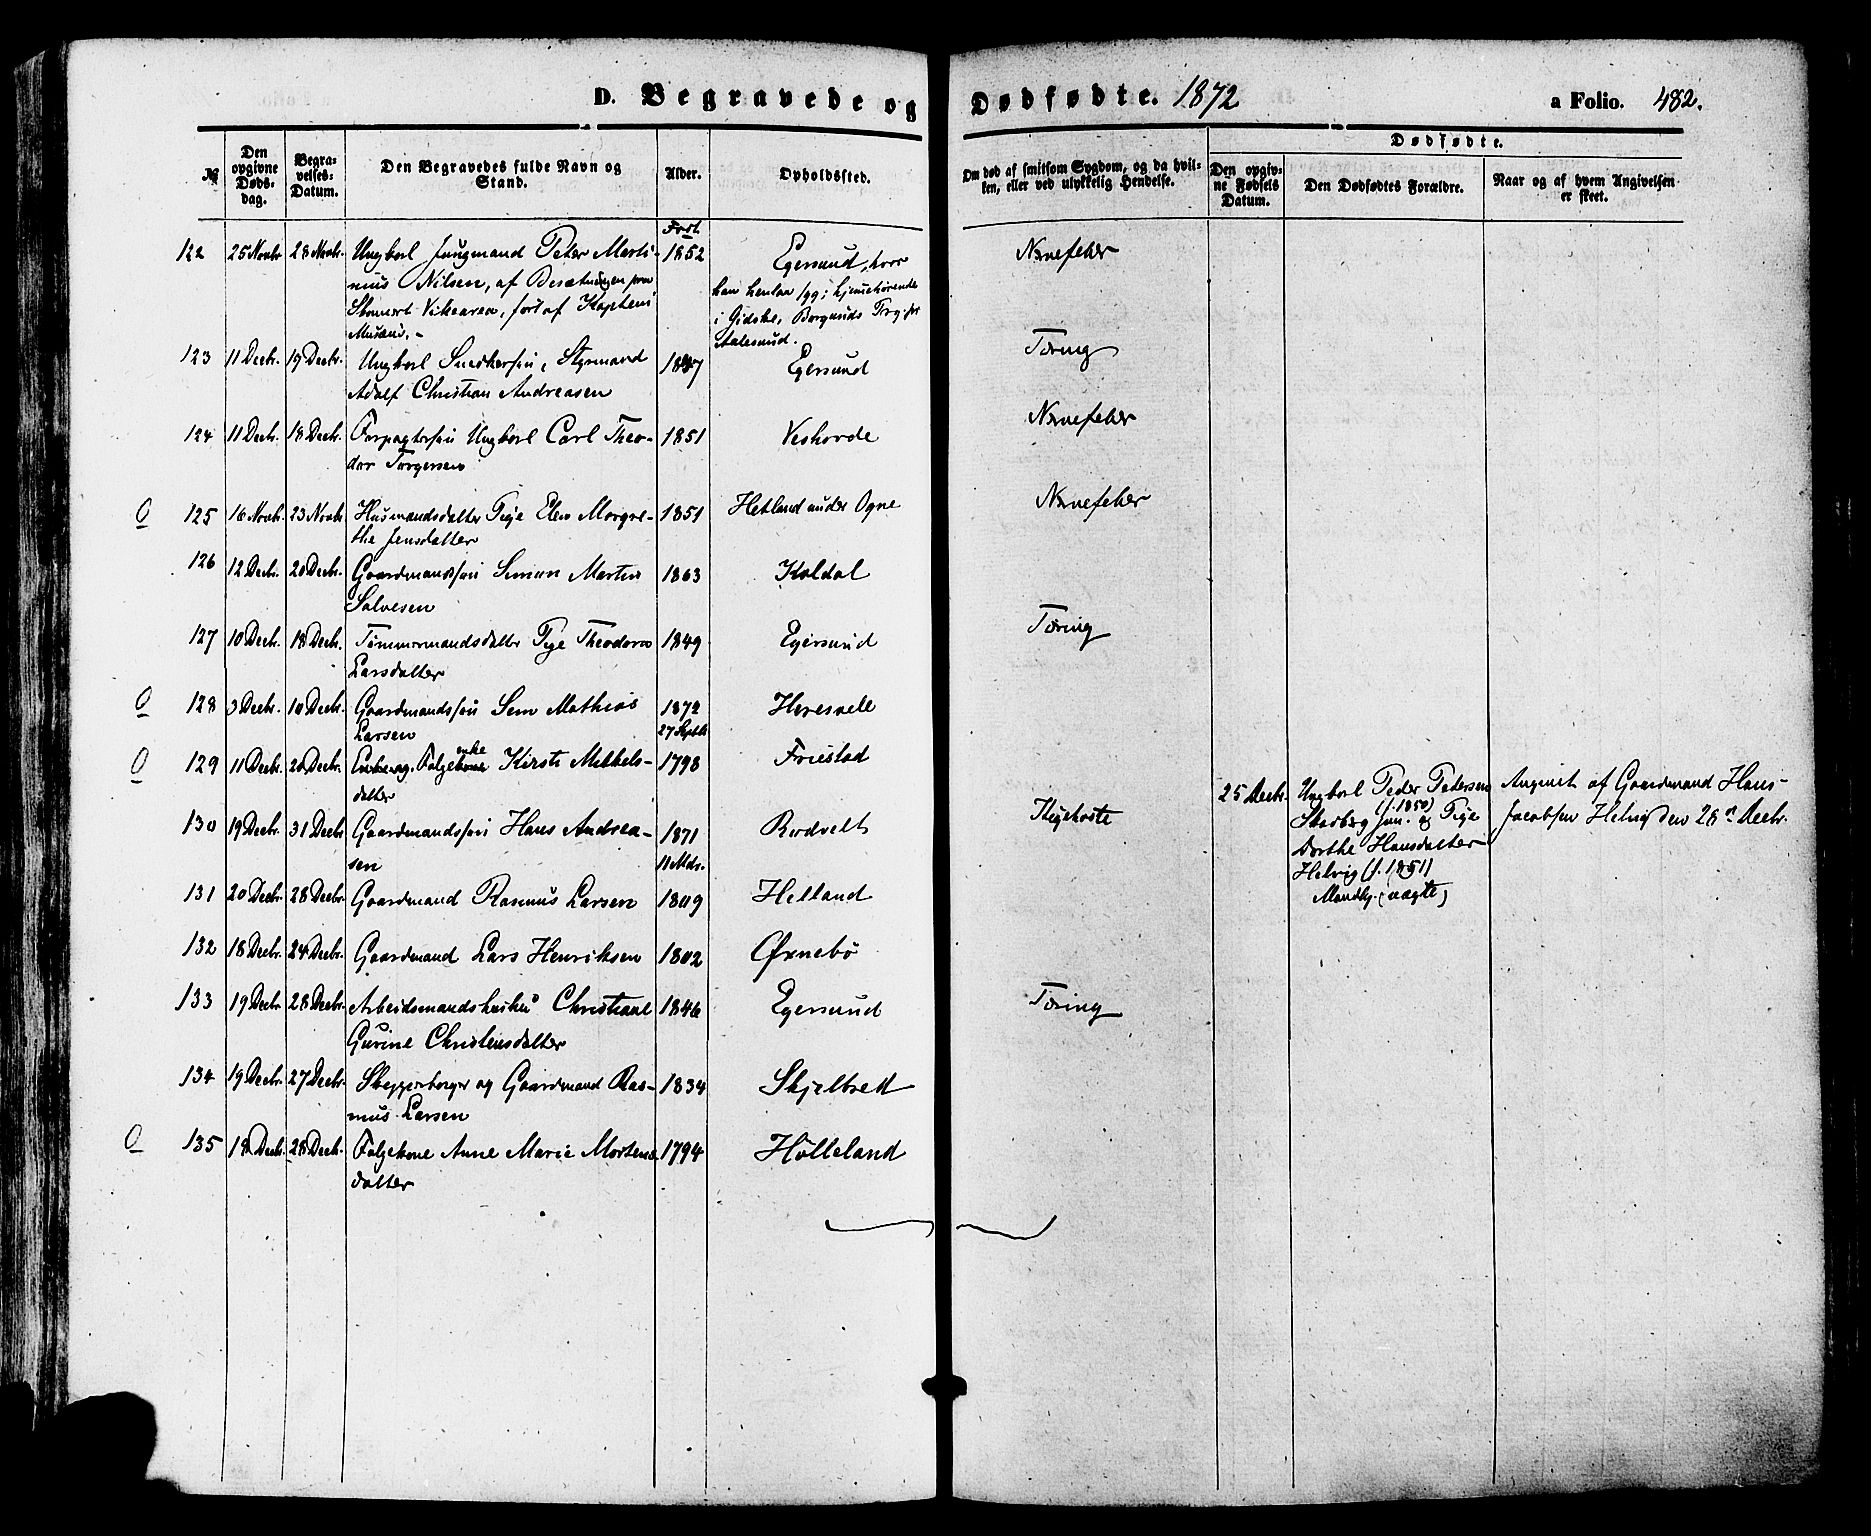 D. Begravede og Dødfødte. 1872 a Folio. 482.
№
Den opgivne Døds-dag.
Begra-velses-Datum.
Den Begravedes fulde Navn og Stand.
Alder.
Opholdssted.
Om død af smitsom Sygdom, og da hvil-
ken, eller ved ulykkelig Hendelse.
Dødfødte.
Den opgiv-ne Fødsels Datum.
Den Dødfødtes Forældre.
Naar og af hvem Angivelsen er skeet.
Født
122 25 Novbr. 28 Novbr. Ungkarl Jungmand Peter Marti- 1852 Egersund, hvor Nervefeber
mus Nilsen, af Besætningen paa han henlaa syg; hjemmehørende
Skonnert Vikearen, ført af Kaptein i Gidske, Borgunds Prgj. pr
Aalesund.
123 11 Decbr. 19 Decbr. Ungkarl Snedkersøn, Styrmand 1847 Egersund Tæring
Adolf Christian Andreasen
124 11 Decbr. 18 Decbr. Forpagtersøn Ungkarl Carl Theo- 1851 Nervefeber
dor Torgersen
O 125 16 Novbr. 23 Novbr. Husmandsdatter Pige Elen Margre- 1851 Hetland under Ogne Nervefeber
the Jensdatter
126 12 Decbr. 20 Decbr. Gaardmandssøn Simon Martin 1863 Koldal
Salvesen
127 10 Decbr. 18 Decbr. Tømmermandsdatter Pige Theodora 1849 Egersund Tæring
Larsdatter
O 128 3 Decbr. 10 Decbr. Gaardmandssøn Sem Mathias 1872
Larsen 27 Septbr
O 129 11 Decbr. 20 Decbr. Føgekone enke Kirsti Mikkels- 1798 Friestad
datter
130 19 Decbr. 31 Decbr. Gaardmandssøn Hans Andrea- 1871 Rodvelt Kighoste
sen 11 Mdr.
25 Decbr. Ungkarl Peder Pedersen Angivet af Gaardmand Hans
Skadberg (f. 1850) jun. og Pige Jacobsen Helvig den 28de Decbr.
Dorthe Hansdatter
Helvig (f. 1851)
Mandkj. (uægte)
131 20 Decbr. 28 Decbr. Gaardmand Rasmus Larsen 1809 Helland
132 18 Decbr. 24 Decbr. Gaardmand Lars Henriksen 1802 Ørnebø
133 19 Decbr. 28 Decbr. Arbeidsmandshustru Christiane 1846 Egersund Tæring
Gurine Christensdatter
134 19 Decbr. 27 Decbr. Skipperborger og Gaardmand Ras- 1834 Skjelbred
mus Larsen
O 135 18 Decbr. 28 Decbr. Følgekone Anne Marie Mortens- 1794 Hølleland
datter